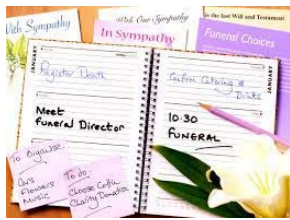 With Sympathy
With Our Sympathy
In Sympathy
is the last Will and Testament
Funeral Choices
JANUARY
Register Death
Meet
Funeral Director
JANUARY
Confirm Catering &
Drinks
10:30
FUNERAL
To Organise
Cars
Flowers
Music
To do
Choose Coffin
Charity Donation